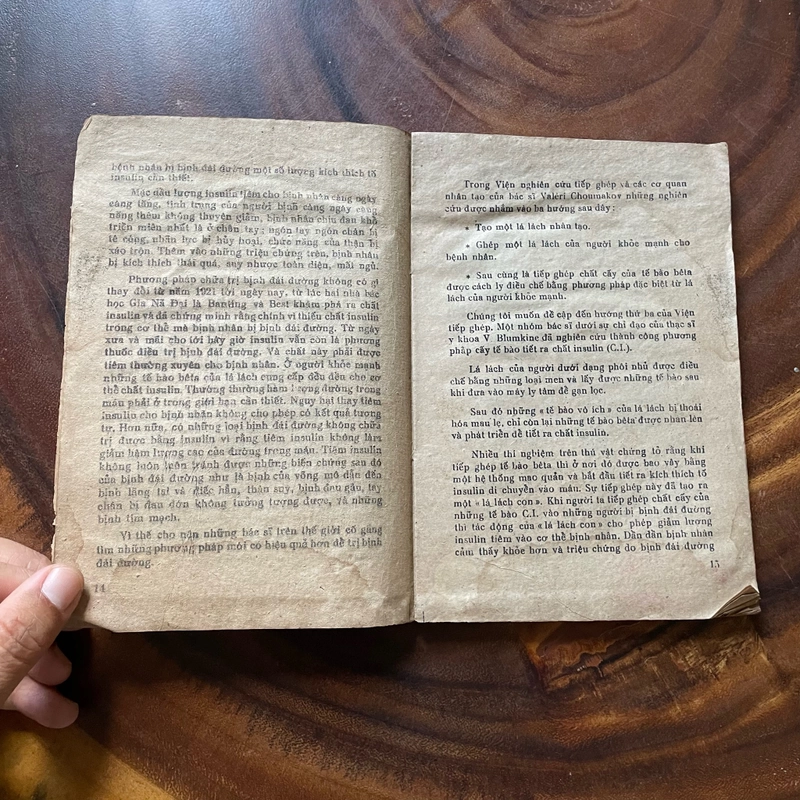 bệnh nhân bị bịnh đái đường một số lượng kích thích tố
insulin cần thiết.
Mặc dầu lượng insulin tiêm cho bịnh nhân càng ngày
càng tăng, tình trạng của người bịnh càng ngày càng
nặng thêu không thuyên giảm, bịnh nhân chịu đau khổ
triền miên nhất là ở chân tay; ngón tay ngón chân bị
tê cóng, nhãn lực bị hủy hoại, chức năng của thận bị
xáo trộn. Thêm vào những triệu chứng trên, bịnh nhân
bị kích thích thái quá, suy nhược toàn diện, mất ngủ.
Phương pháp chữa trị bịnh đái đường không có gì
thay đổi từ năm 1921 tới ngày nay, từ lúc hai nhà bác
học Gia Nã Đại là Banting và Best khám phá ra chất
insulin và đã chứng minh rằng chính vì thiếu chất insulin
trong cơ thể mà bịnh nhân bị bịnh đái đường. Từ ngày
xưa và mãi cho tới bây giờ insulin vẫn còn là phương
thuốc điều trị bịnh đái đường. Và chất này phải được
tiêm thường xuyên cho bịnh nhân. Ở người khỏe mạnh
những tế bào bêta của lá lách cung cấp đều đều cho cơ
thể chất insulin. Thường thường hàm lượng đường trong
máu phải ở trong giới hạn cần thiết. Nguy hại thay tiêm
insulin cho bịnh nhân không cho phép có kết quả tương
tự. Hơn nữa, có những loại bịnh đái đường không chữa
trị được bằng insulin vì rằng tiêm insulin không làm
giảm hàm lượng cao của đường trong máu. Tiêm insulin
không luôn luôn tránh được những biến chứng sau đó
của bịnh đái đường như là bịnh của võng mô dẫn đến
bịnh lãng tai và điếc hẳn, thận suy, bịnh đau gấu, tay
chân bị đau đớn không tưởng tượng được, và những
bịnh tim mạch.
Vì thế cho nên những bác sĩ trên thế giới cố gắng
tìm những phương pháp mới có hiệu quả hơn để trị bịnh
đái đường.
14
Trong Viện nghiên cứu tiếp ghép và các cơ quan
nhân tạo của bác sĩ Valéri Choumakov những nghiên
cứu được nhắm vào ba hướng sau đây:
* Tạo một lá lách nhân tạo.
* Ghép một lá lách của người khỏe mạnh cho
bệnh nhân.
* Sau cùng là tiếp ghép chất cấy của tế bào bêta
được cách ly điều chế bằng phương pháp đặc biệt từ lá
lách của người khỏe mạnh.
Chúng tôi muốn đề cập đến hướng thứ ba của Viện
tiếp ghép. Một nhóm bác sĩ dưới sự chỉ đạo của thạc sĩ
y khoa V. Blumkine đã nghiên cứu thành công phương
phấp cấy tế bào tiết ra chất insulin (C.I.).
Lá lách của người dưới dạng phôi nhủ được điều
chế bằng những loại men và lấy được những tế bào sau
khi đưa vào máy ly tâm để gạn lọc.
Sau đó những «tế bào vô ích» của lá lách bị thoái
hóa mau lẹ, chỉ còn lại những tế bào bêta được nhân lên
và phát triển để tiết ra chất insulin.
Nhiều thí nghiệm trên thú vật chứng tỏ rằng khi
tiếp ghép tế bào bêta thì ở nơi đó được bao vây bằng
một hệ thống mao quản và bắt đầu tiết ra kích thích tố
insulin di chuyển vào máu. Sự tiếp ghép này đã tạo ra
một «lá lách con». Khi người ta tiếp ghép chất cấy của
những tế bào C.I. vào những người bị bịnh đái đường
thì tác động của «lá lách con» cho phép giảm lương
insulin tiêm vào cơ thể bịnh nhân. Dần dần bịnh nhân
cảm thấy khỏe hơn và triệu chứng do bịnh đái đường
15